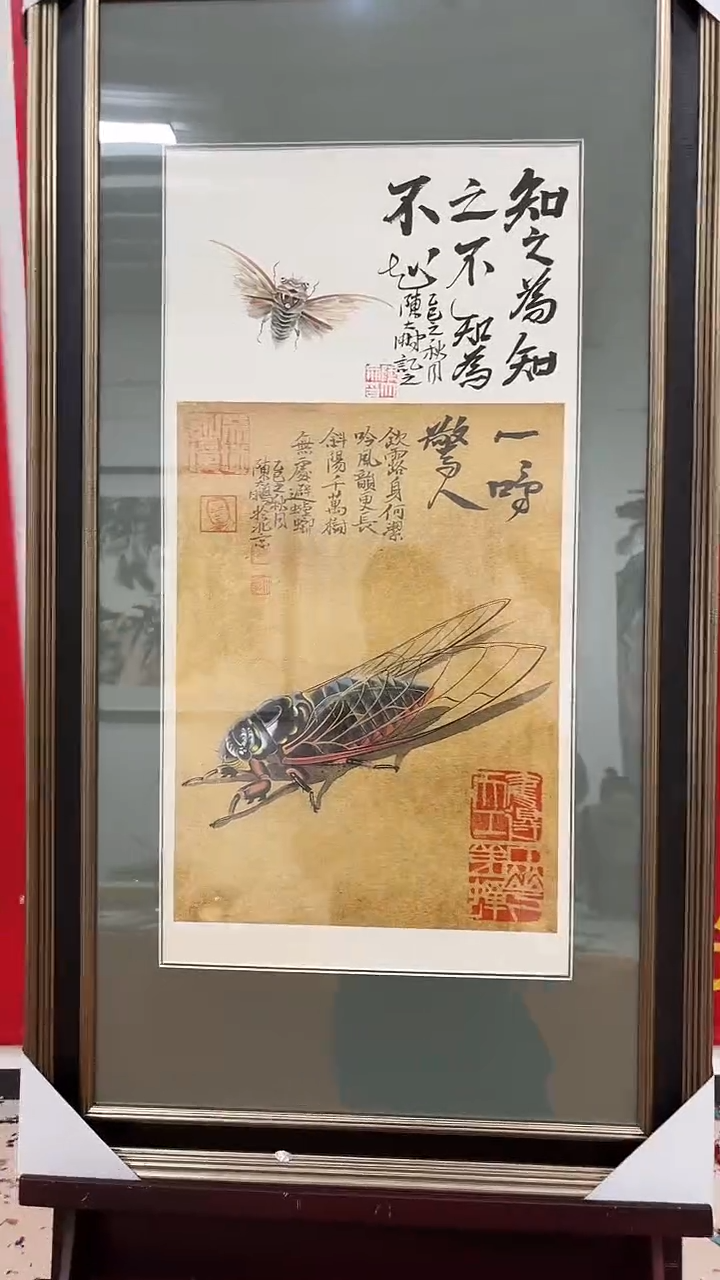 知之為知
之不知為
不
乙巳之秋月
陳大 記之
一鳴
驚人
飲露身何潔
吟風韻更長
斜陽千萬樹
無處避螳螂
乙巳之秋月
陳 於北京